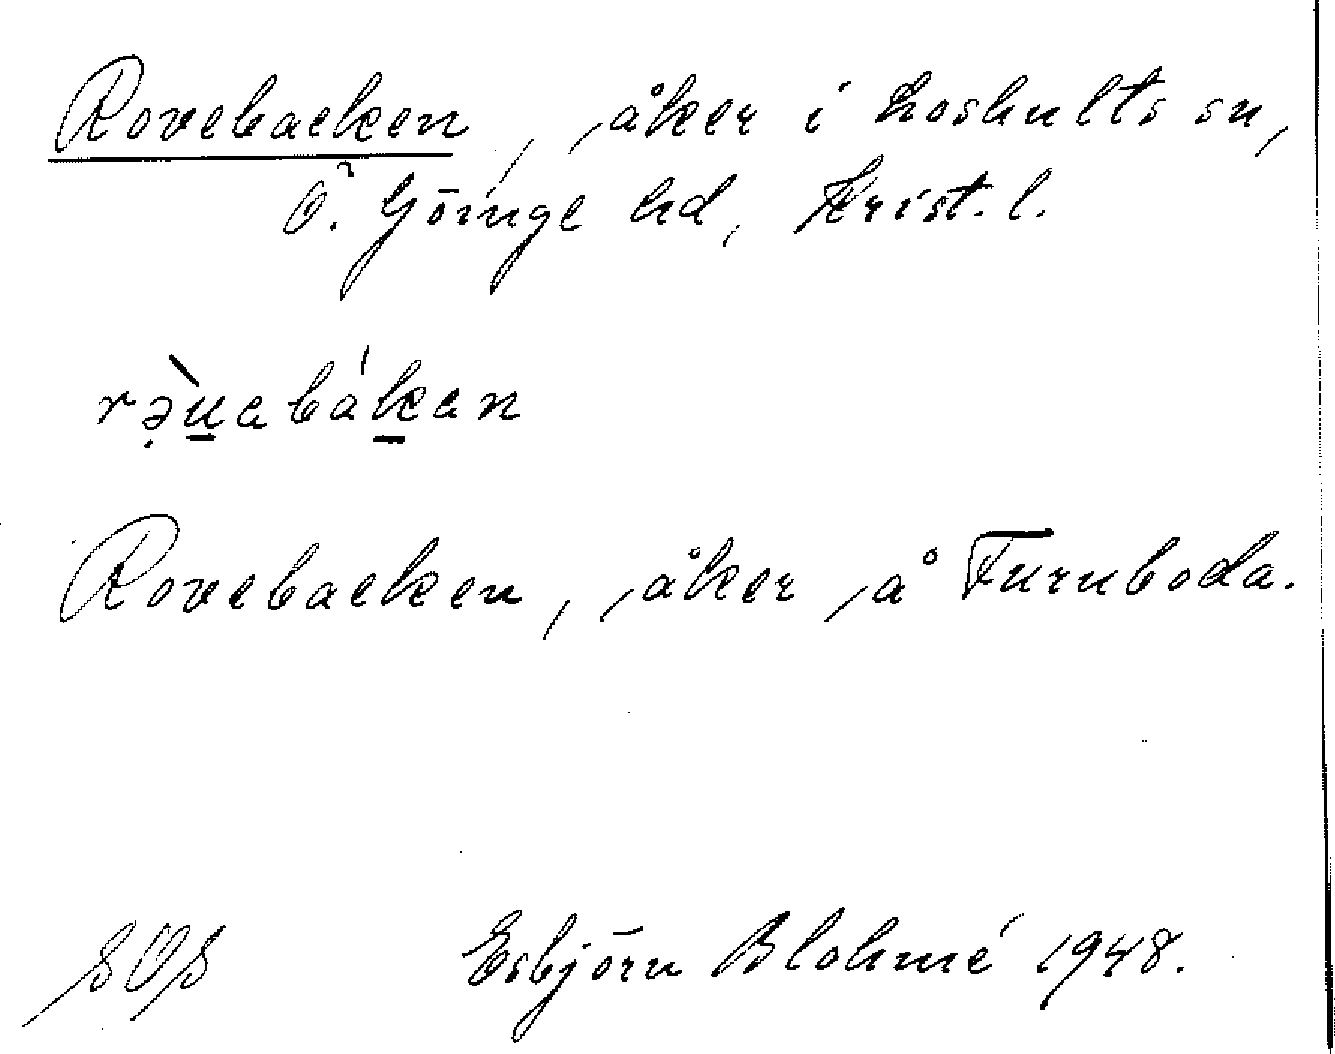 Rovebacken, åker i Loshults sn,
Ö. Göinge hd, Krist. l.
rə̣̀u̲abák̲an
Rovebacken, åker å Furuboda.
SOS Esbjörn Blohmé 1948.